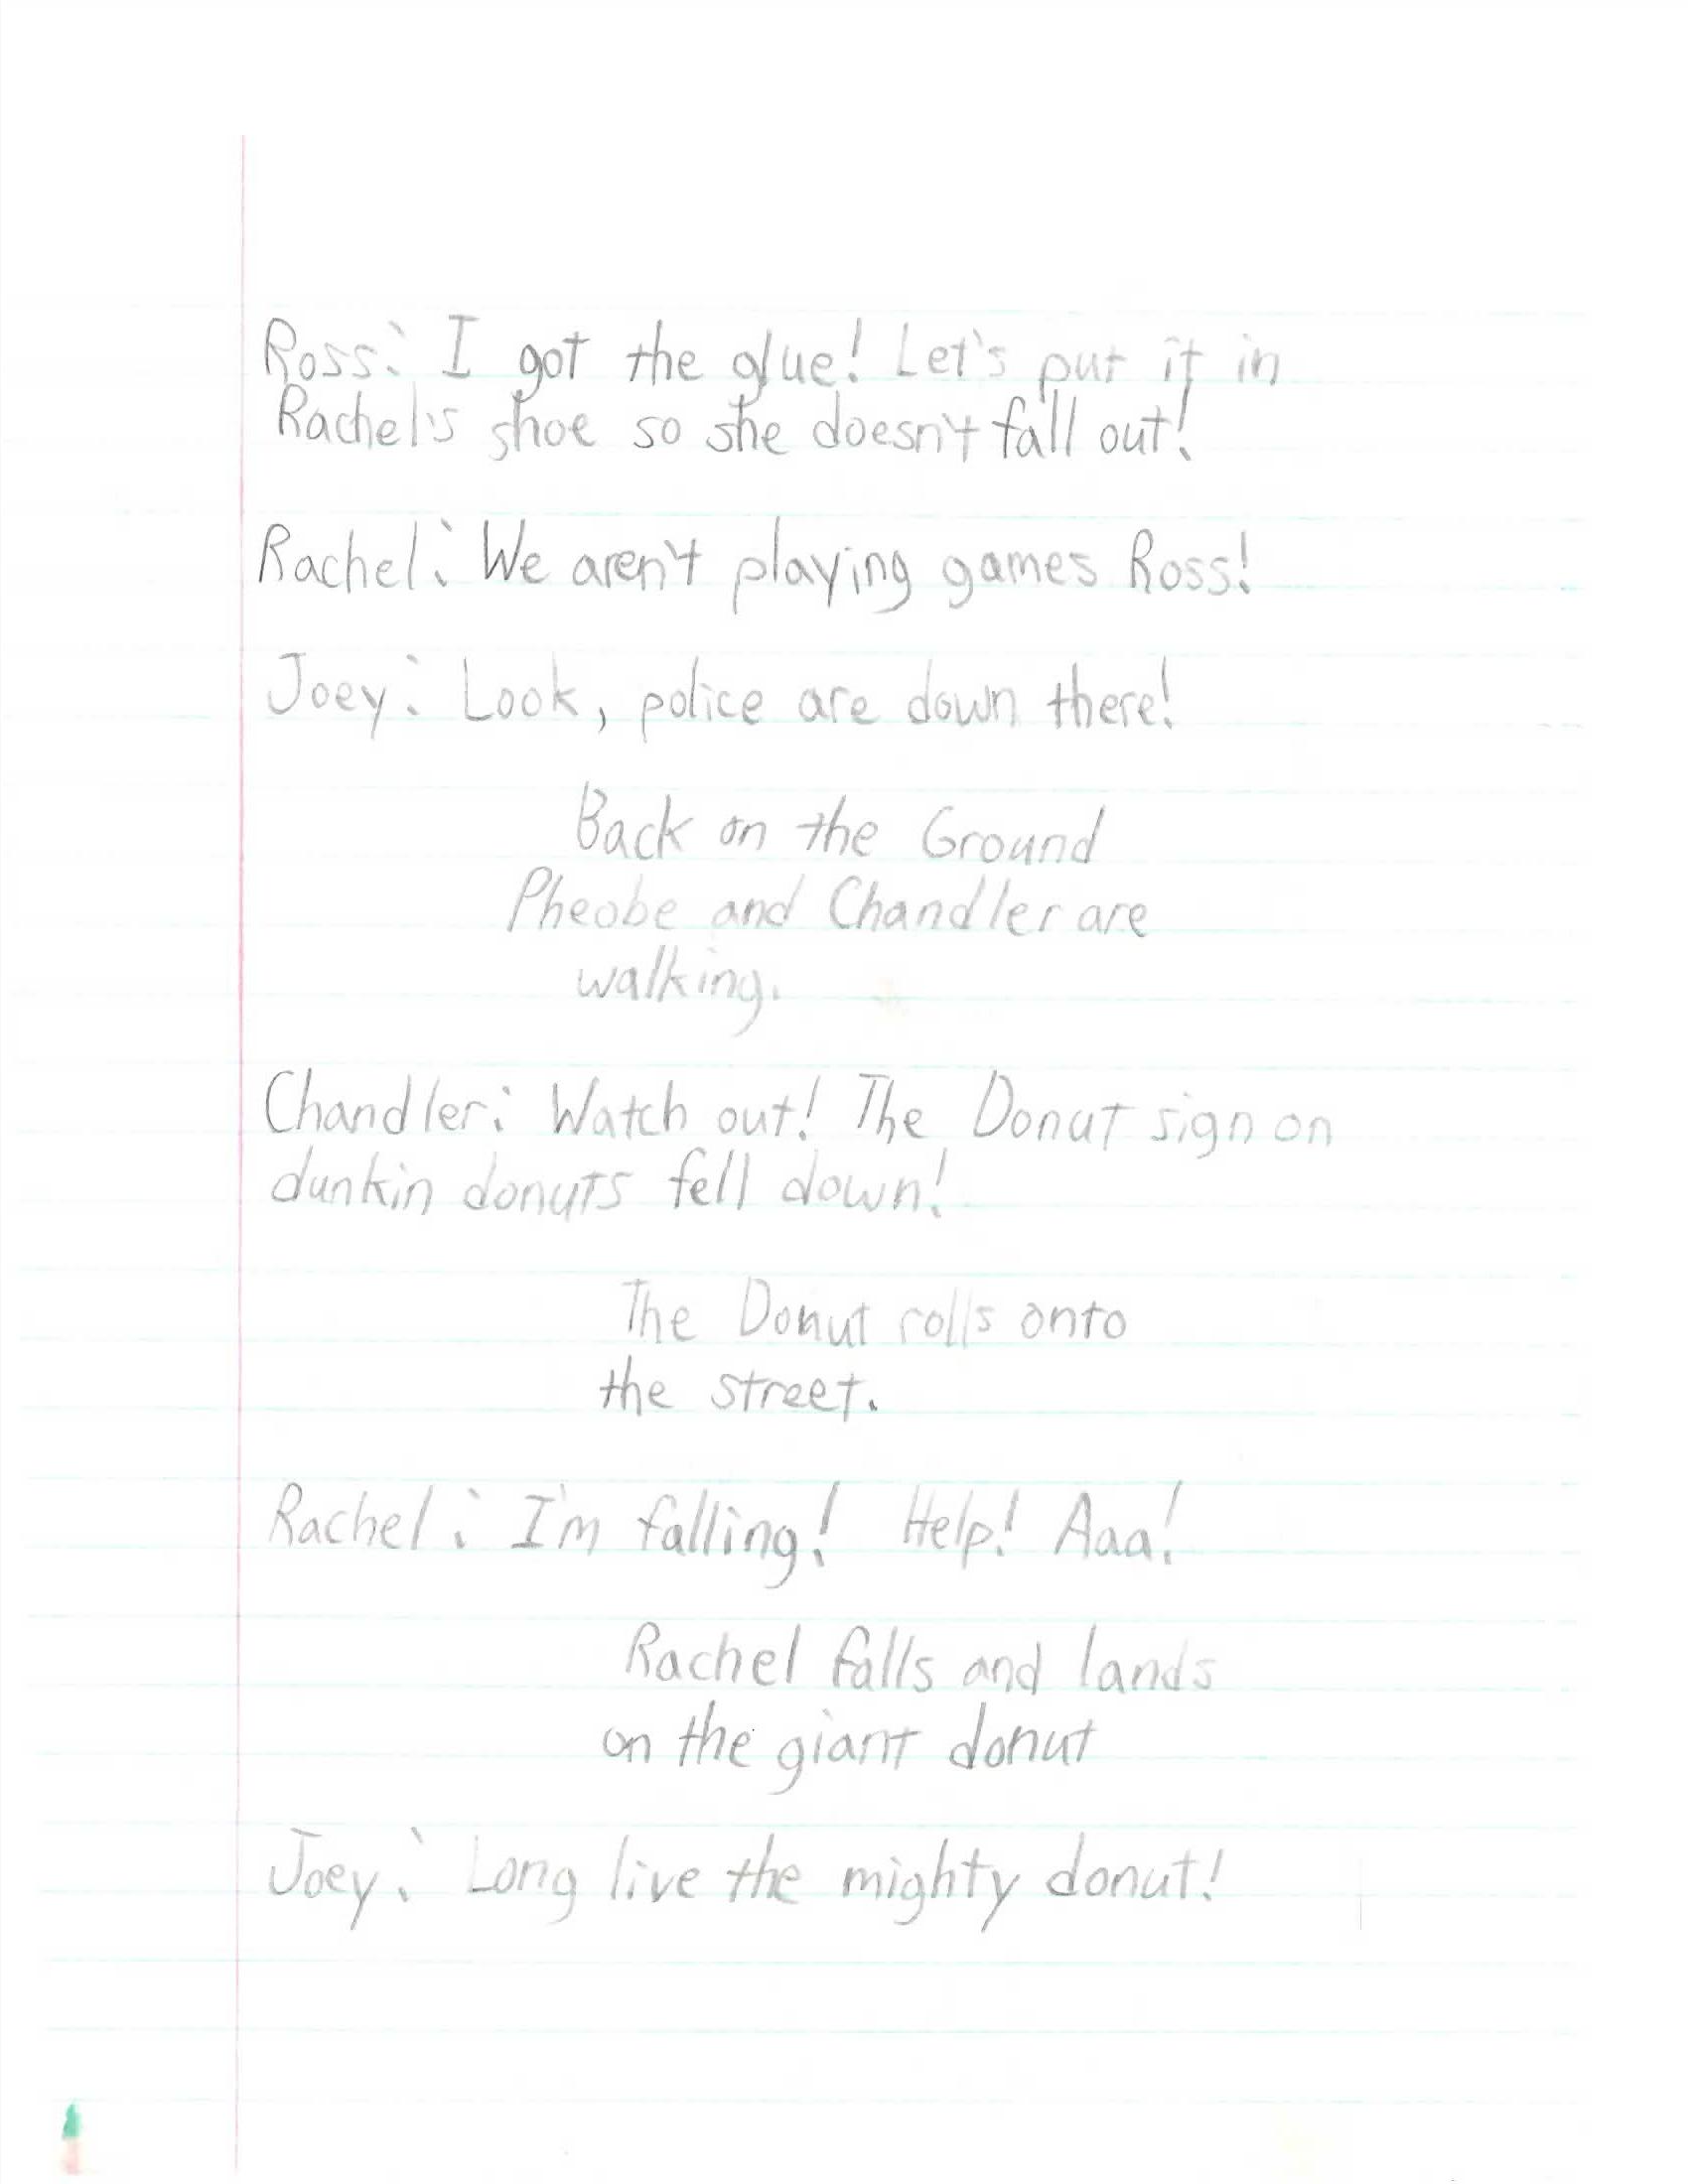 Ross: I got the glue! Let's put it in
Rachel's shoe so she doesn't fall out!
Rachel: We aren't playing games Ross!
Joey: Look, police are down there!
Back on the Ground
Pheobe and Chandler are
walking.
Chandler: Watch out! The Donut sign on
dunkin donuts fell down!
The Donut rolls onto
the street.
Rachel: I'm falling! Help! Aaa!
Rachel falls and lands
on the giant donut
Joey: Long live the mighty donut!